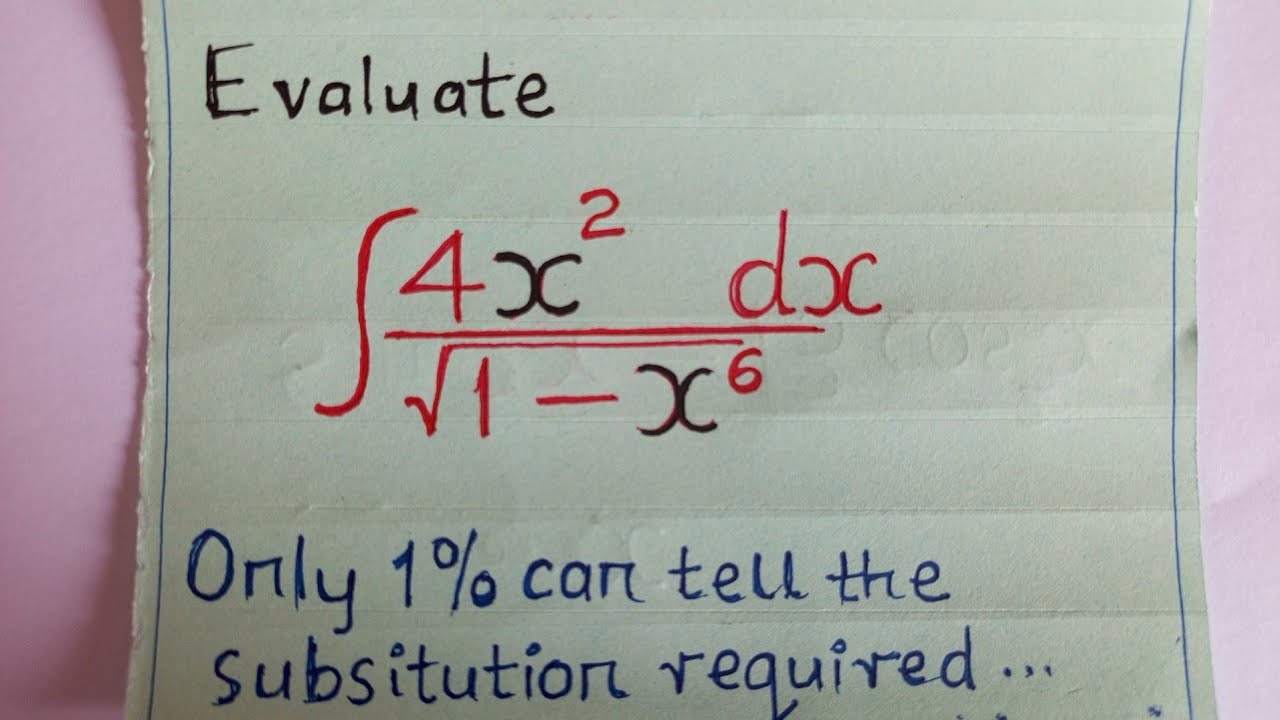 Evaluate
∫ 4x² dx
√1 − x⁶
Only 1% can tell the
subsitution required...